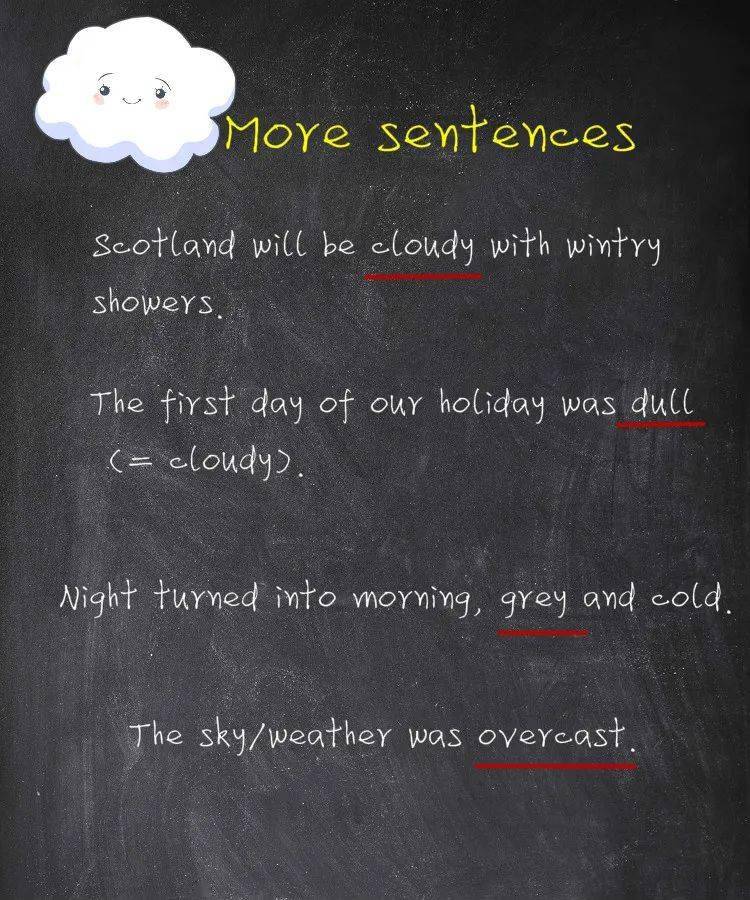 More sentences
Scotland will be cloudy with wintry
showers.
The first day of our holiday was dull
(= cloudy).
Night turned into morning, grey and cold.
The sky/weather was overcast.